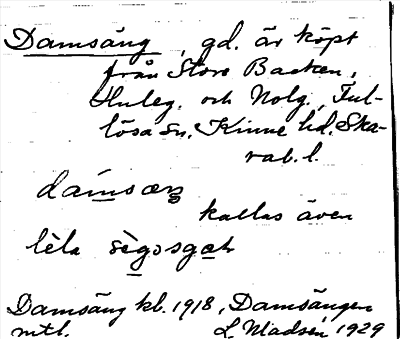 Damsäng, gd. är köpt
från Stora Backen,
Huleg. och Nolg., Ful-
lösa sn. Kinne hd. Ska-
rab. l.
kallas även
lèla
Damsäng kb. 1918, Damsängen
mtl. L. Madsén 1929